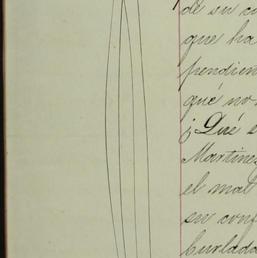 de su co
que ha
pendien
qué no
¡Qué e
Martines
el mal
su conf
burlada